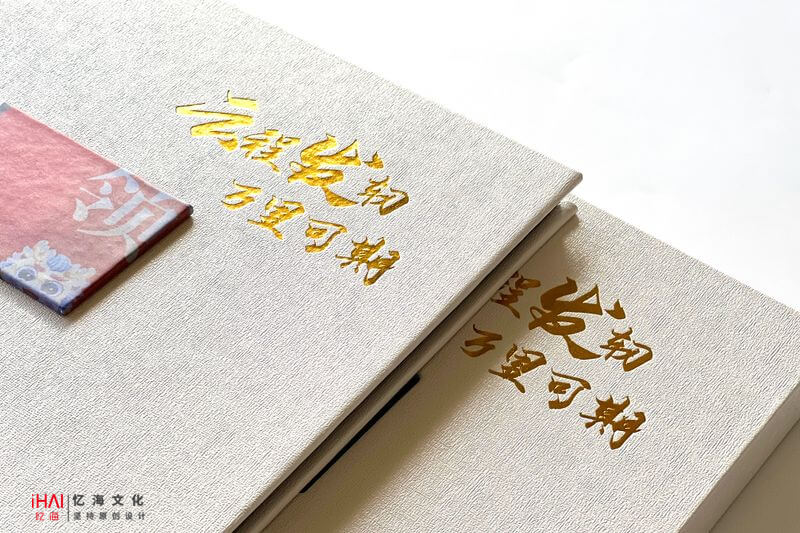 云程发轫
万里可期
领
程发轫
万里可期
iHAI
忆海
忆海文化
坚持原创设计